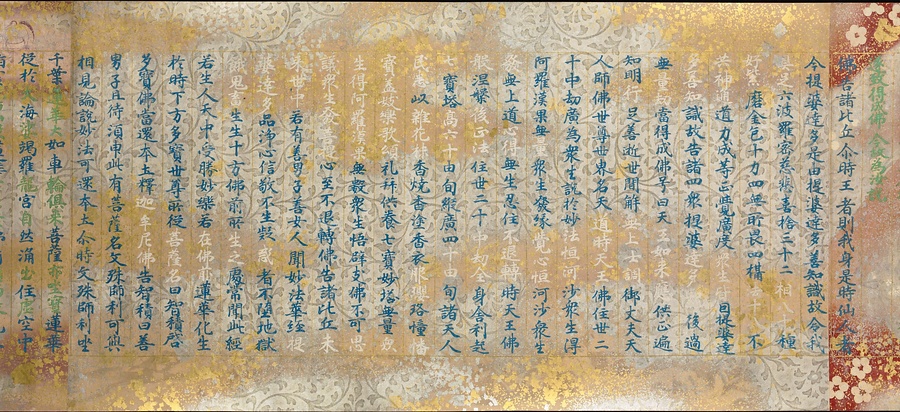 得佛 今為汝說
佛告諸比丘尒時王者則我身是時仙人者
今提婆達多是由提婆達多善知識故令我
具足六波羅蜜慈悲喜捨三十二相八十種
好紫磨金色十力四無所畏四攝法十八不
共神通道力成等正覺廣度眾生皆因提婆達
多善知識故告諸四眾提婆達多却後過
無量劫當得成佛号曰天王如来應供正遍
知明行足善逝世間解無上士調御丈夫天
人師佛世尊世界名天道時天王佛住世二
十中劫廣為眾生說於妙法恒河沙眾生得
阿羅漢果無量眾生發緣覺心恒河沙眾生
發無上道心得無生忍住不退轉時天王佛
般涅槃後正法住世二十中劫全身舍利起
七寶塔高六十由旬縱廣四十由旬諸天人
民悉以雜花抹香燒香塗香衣服瓔珞幢幡
寶蓋妓樂歌頌礼拜供養七寶妙塔無量眾
生得阿羅漢果無數眾生悟辟支佛不可思
議眾生發菩提心至不退轉佛告諸比丘未
來世中若有善男子善女人聞妙法華經
提婆達多品淨心信敬不生疑惑者不墮地獄
餓鬼畜生生十方佛前所生之處常聞此經
若生人天中受勝妙樂若在佛前蓮華化生
於時下方多寶世尊所從菩薩名曰智積啓
多寶佛當還本土釋迦牟尼佛告智積曰善
男子且待須臾此有菩薩名文殊師利可與
相見論說妙法可還本土尒時文殊師利坐
千葉蓮華大如車輪俱来菩薩亦坐寶蓮華
從於大海娑竭羅龍宮自然涌出住虛空中